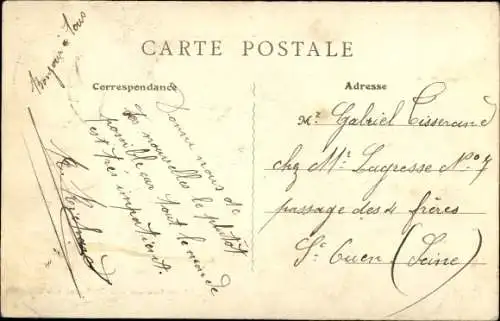 CARTE POSTALE
Correspondance
Adresse
Bonjour à tous
Donné nous de
tes nouvelles le plutôt
possible car tout le monde
est très impatient.
Mr Gabriel Tisserand
chez Mr Lagresse No 7
passage des 4 frères
St Ouen (Seine)